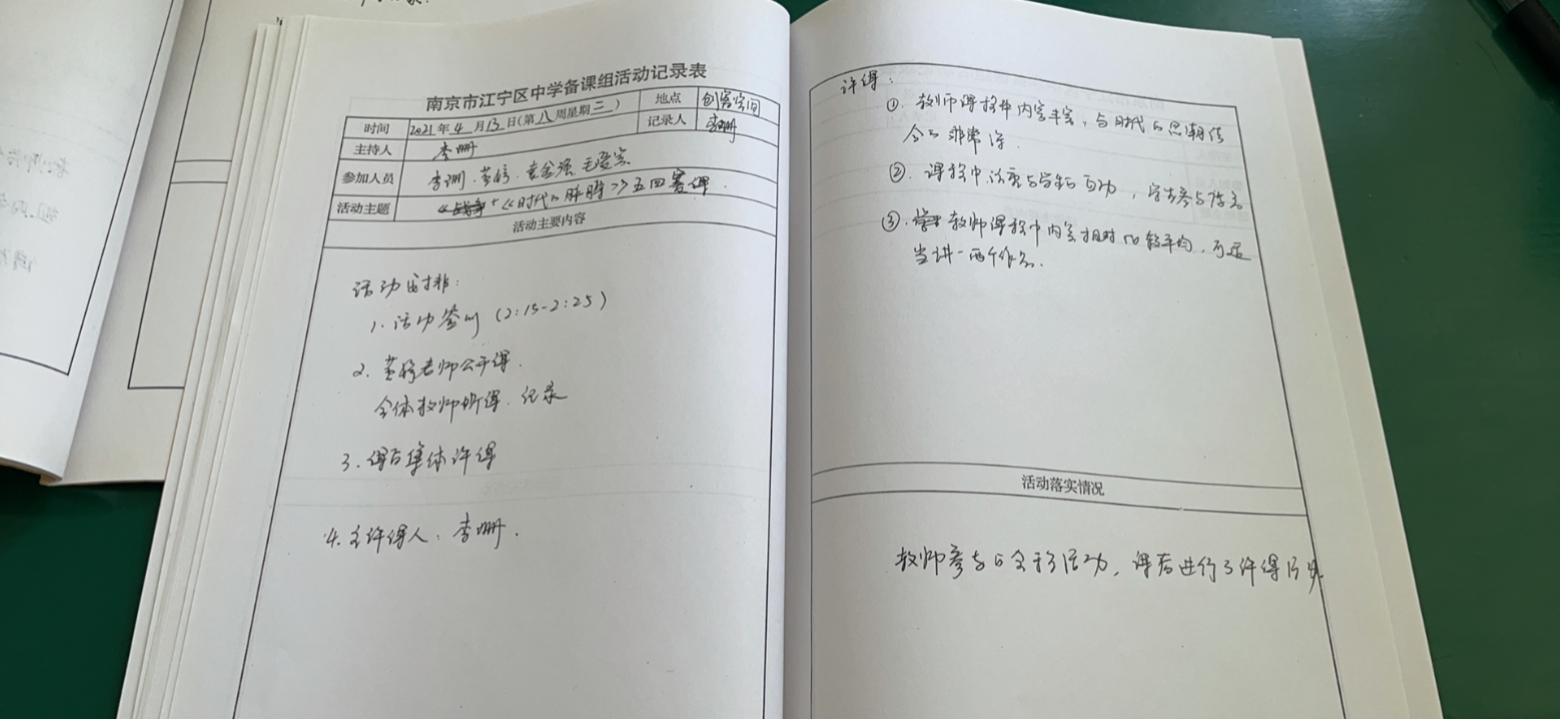 南京市江宁区中学备课组活动记录表
时间 2021年4月13日(第八周星期二) 地点 创客空间
主持人 李珊 记录人 李珊
参加人员 李珊
活动主题 《时代的脉搏》五四赛课
活动主要内容
活动安排:
1. 活动签到 (2:15-2:25)
2. 老师公开课.
全体教师听课、记录
3. 课后集体评课
4. 主评课人:李珊.
评课:
①. 教师课程内容丰富,与时代的思潮结
合的非常好.
②. 课程中注意与学生互动,学生参与
③. 教师课程中内容相对比较平均,可适
当讲一两个作品.
活动落实情况
教师参与了全部活动,课后进行了评课